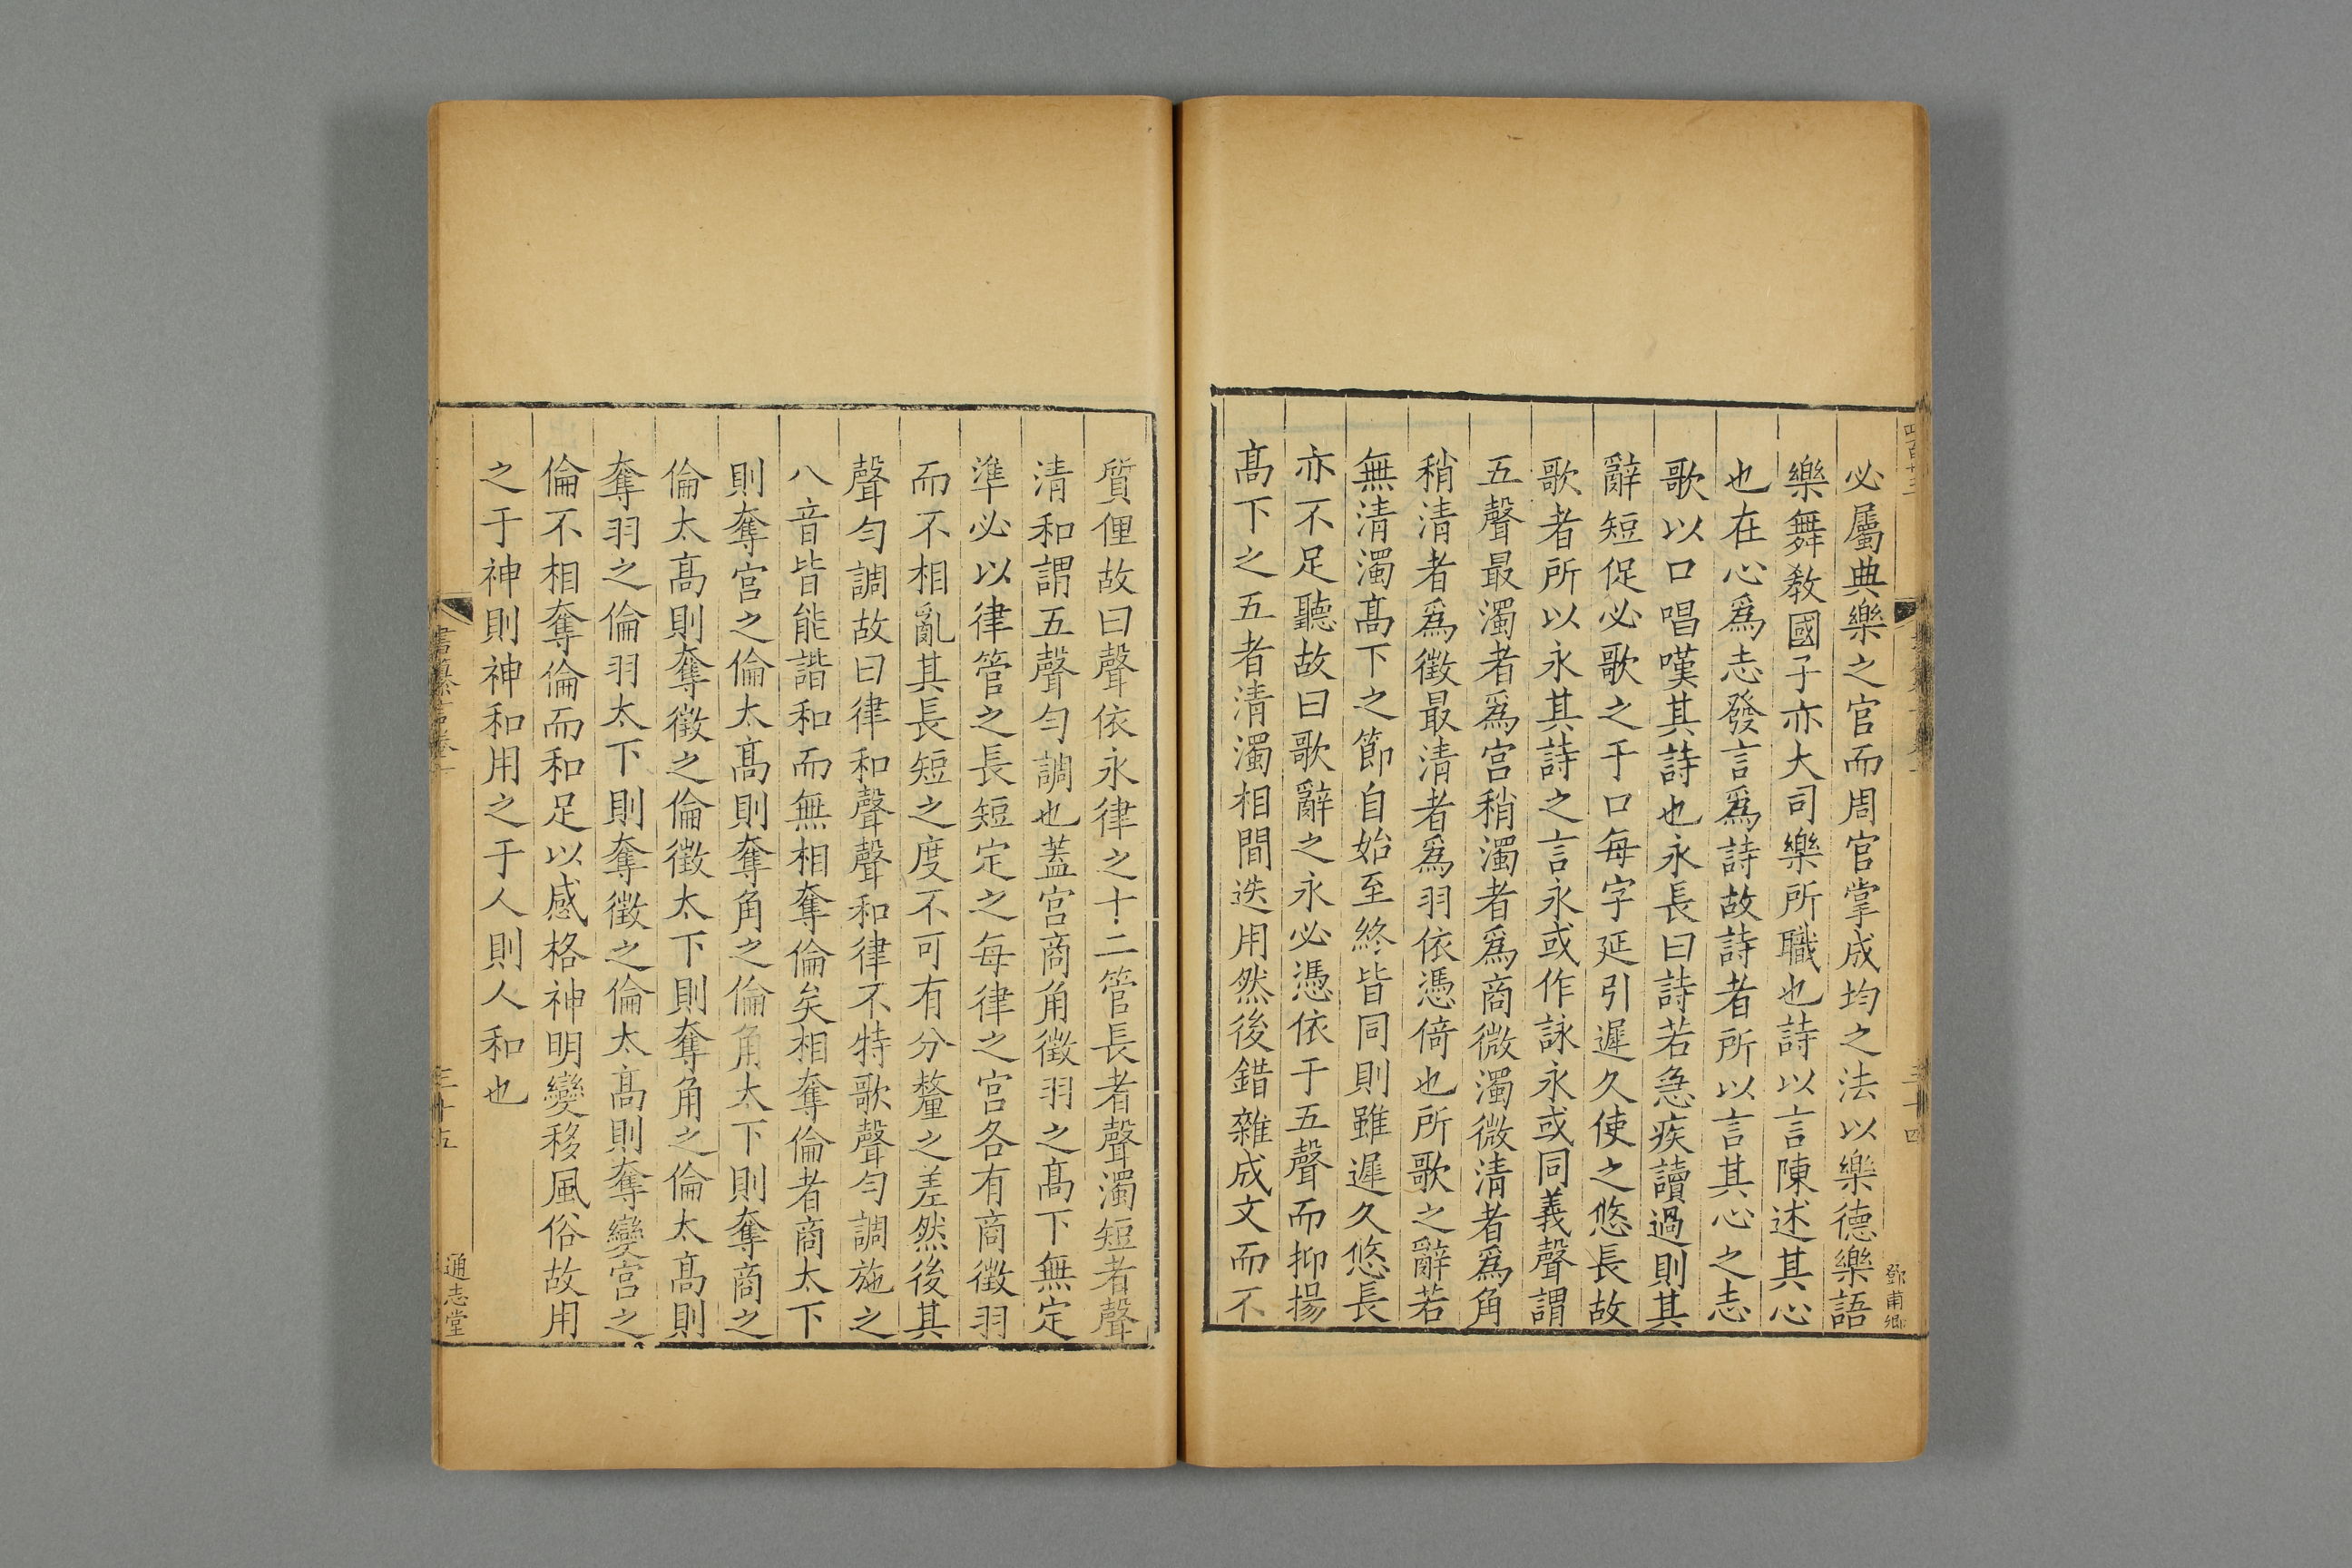 必屬典樂之官而周官掌成均之法以樂德樂語
樂舞敎國子亦大司樂所職也詩以言陳述其心
也在心爲志發言爲詩故詩者所以言其心之志
歌以口唱嘆其詩也永長曰詩若急疾讀過則其
辭短促必歌之于口每字延引遲久使之悠長故
歌者所以永其詩之言永或作詠永或同義聲謂
五聲最濁者爲宫稍濁者爲商微濁微清者爲角
稍清者爲徵最清者爲羽依憑倚也所歌之辭若
無清濁髙下之節自始至終皆同則雖遲久悠長
亦不足聽故曰歌辭之永必憑依于五聲而抑揚
髙下之五者清濁相間迭用然後錯雜成文而不
鄧甫卿
質俚故曰聲依永律之十二管長者聲濁短者聲
清和謂五聲勻調也蓋宫商角徵羽之髙下無定
準必以律管之長短定之每律之宫各有商徵羽
而不相亂其長短之度不可有分釐之差然後其
聲勻調故曰律和聲聲和律不特歌聲勻調施之
八音皆能諧和而無相奪倫矣相奪倫者商太下
則奪宫之倫太髙則奪角之倫角太下則奪商之
倫太髙則奪徵之倫徵太下則奪角之倫太髙則
奪羽之倫羽太下則奪徵之倫太髙則奪變宫之
倫不相奪倫而和足以感格神明變移風俗故用
之于神則神和用之于人則人和也
書纂言卷一
三十五
通志堂